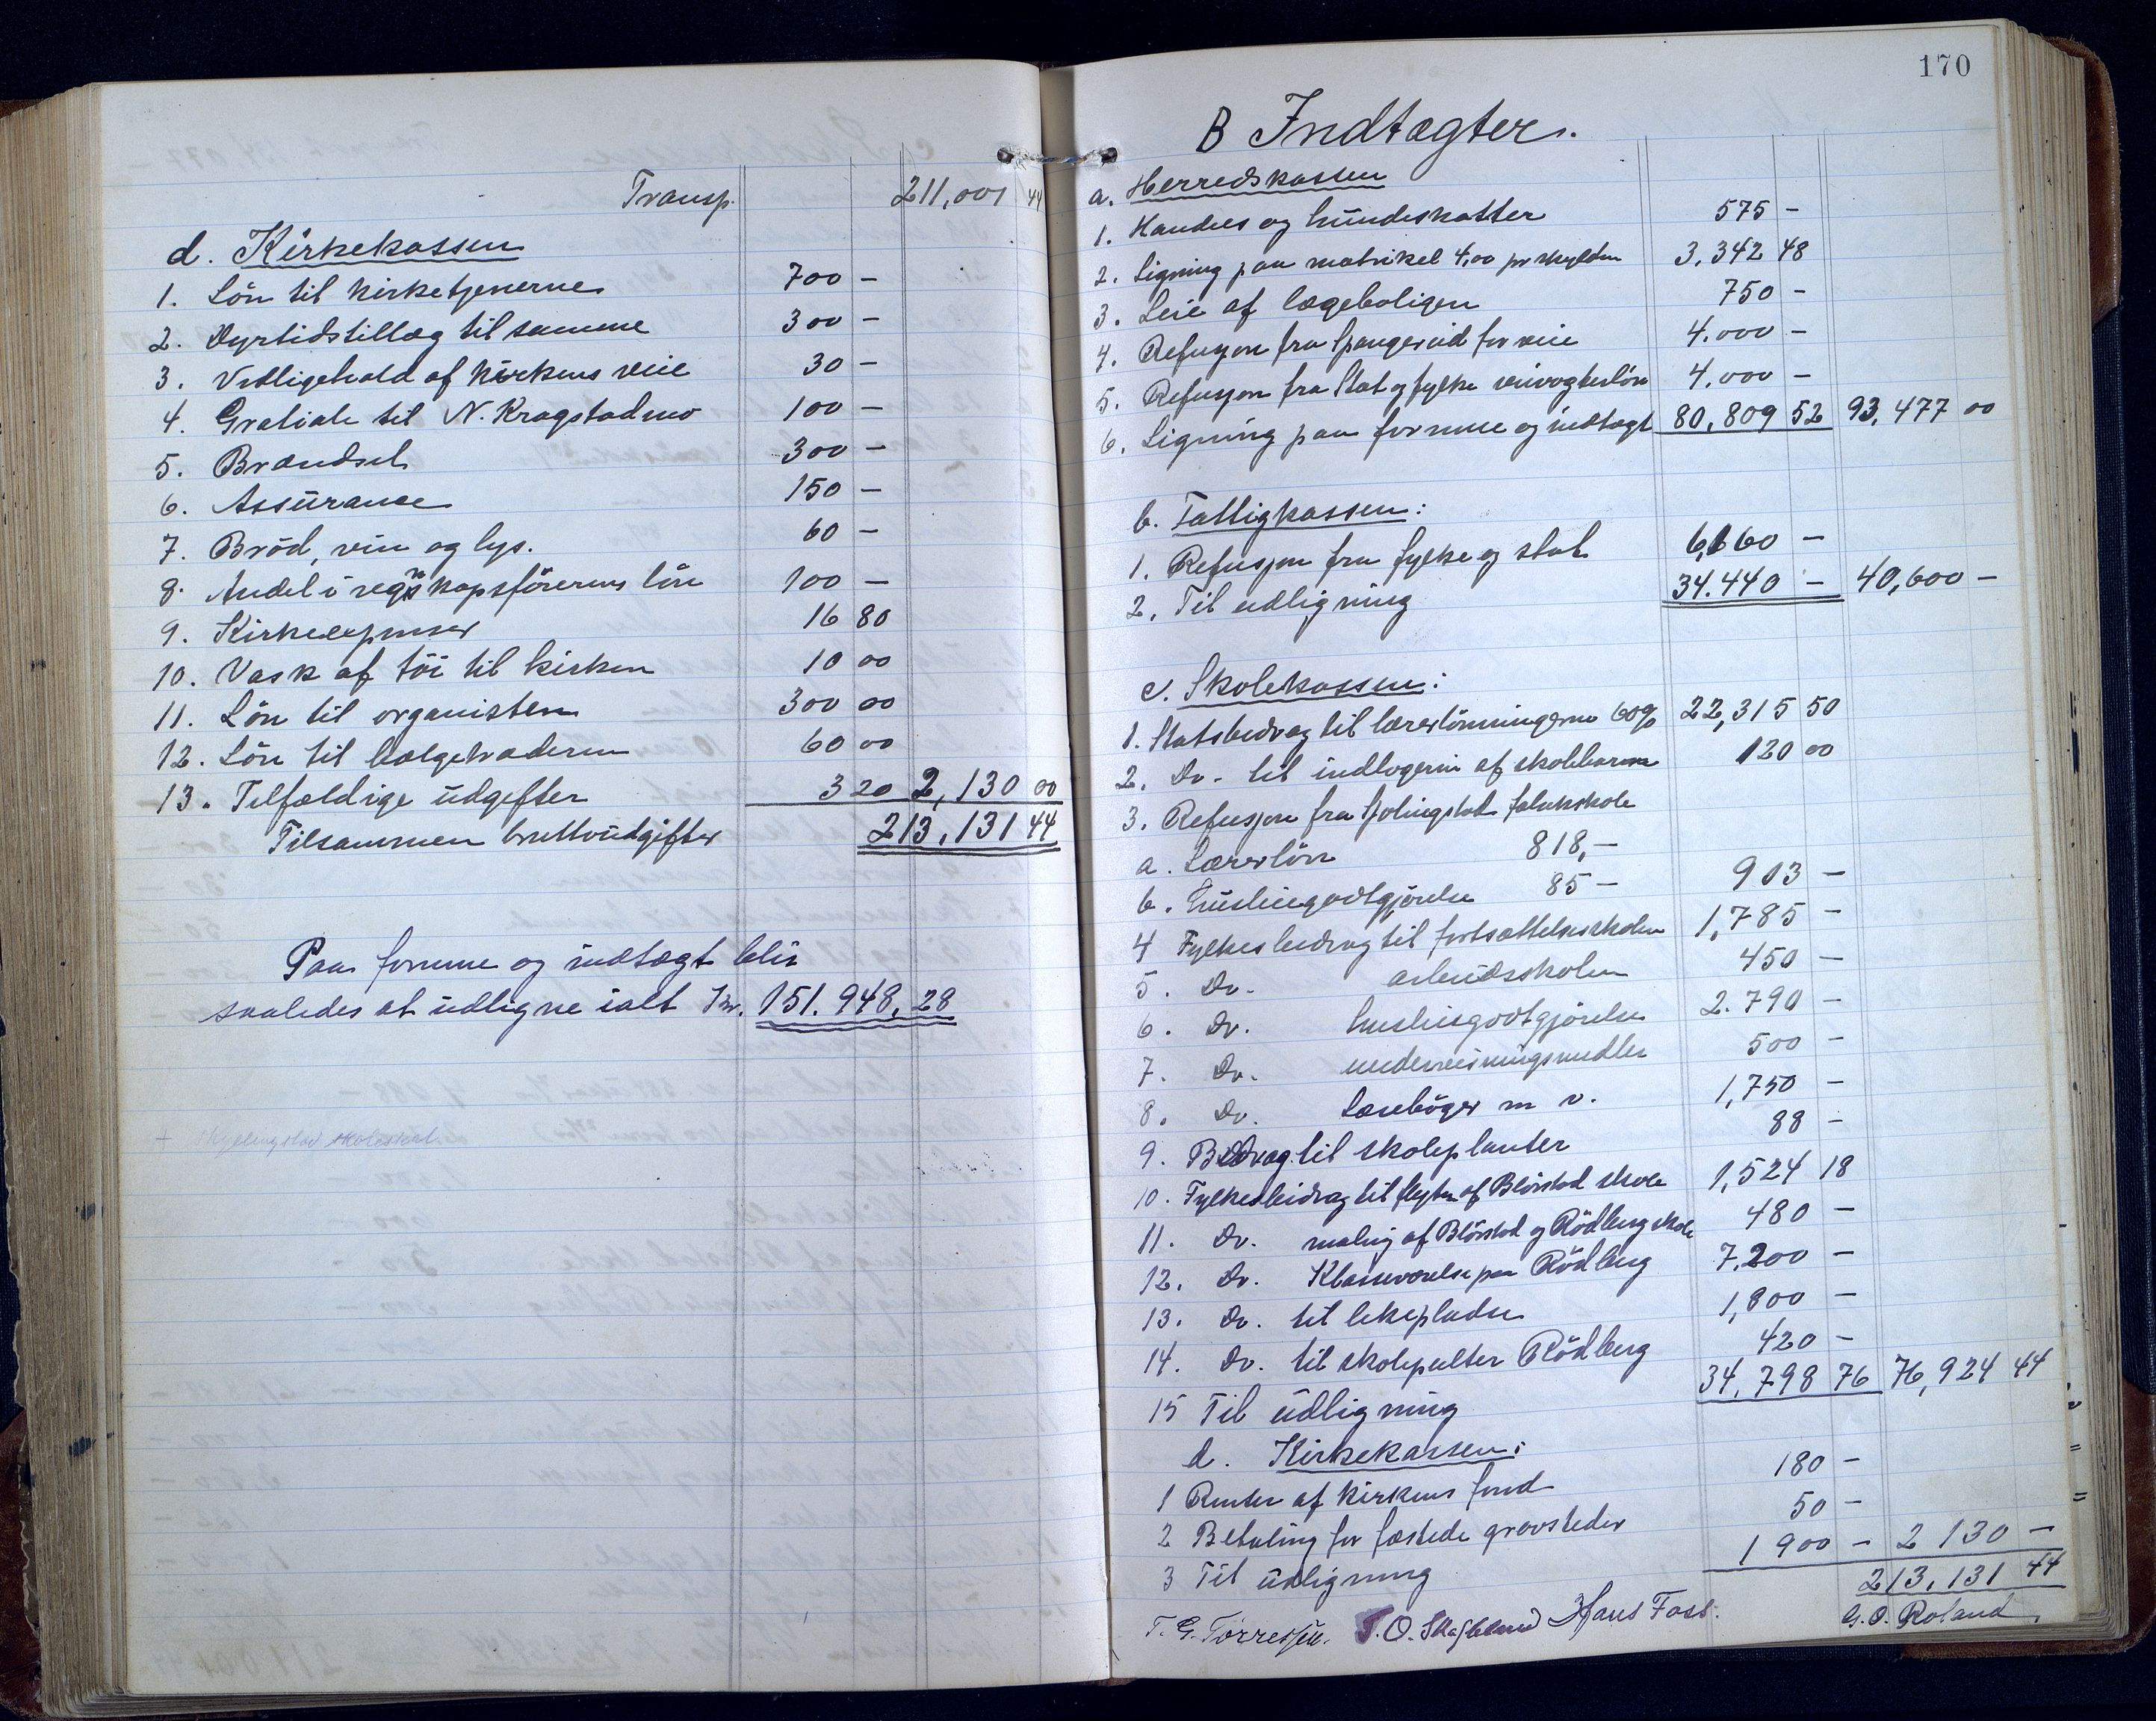 Transp. 211,001 44
d. Kirkekassen
1. Lön til kirketjenerne 700 -
2. Dyrtidstillæg til samme 300 -
3. Vedligehold af kirkens veie 30 -
4. Gratiale til N. Kragstadmo 100 -
5. Brændsel 300 -
6. Assurance 150 -
7. Bröd, vin og lys. 60 -
8. Andel i regnskapsförerens lön 100 -
9. Kirkeexpenser 16 80
10. Vask af töi til kirken 10 00
11. Lön til organisten 300 00
12. Lön til bælgetræderen 60 00
13. Tilfældige udgifter 3 20 2,130 00
Tilsammen bruttoudgifter 213,131 44
Paa formue og indtægt blir
saaledes at udligne ialt Kr. 151.948,28
170
B Indtægter.
a. Herredskassen
1. Handels og hundeskatter 575 -
2. Ligning paa matrikel 4,00 pr skylden 3,342 48
3. Leie af lægeboligen 750 -
4. Refusjon fra Spangereid for veie 4.000 -
5. Refusjon fra Stat og fylke veivogterlön 4.000 -
6. Ligning paa formue og indtægt 80,809 52 93,477 00
b. Fattigkassen:
1. Refusjon fra fylke og stat 6,160 -
2. Til udligning 34.440 - 40,600 -
c. Skolekassen:
1. Statsbidrag til lærerlönningerne 60% 22,315 50
2. Do. til indlogering af skolebarn 120 00
3. Refusjon fra
a. Lærerlön 818,-
b. Husleiegodtgjörelse 85 - 903 -
4 Fylkesbidrag til fortsættelsesskolen 1,785 -
5. Do. arbeidsskolen 450 -
6. Do. husleiegodtgjörelse 2.790 -
7. Do. undervisningsmidler 500 -
8. Do. Læseböger m v. 1,750 -
9. Bidrag til skoleplanter 88 -
10. Fylkesbidrag til flytn af Blörstad skole 1,524 18
11. Do. maling af Blörstad og Rödberg skole 480 -
12. Do. Klasseværelse paa Rödberg 7,200 -
13. Do. til lekepladse 1,800 -
14. Do. til skolepulter Rödberg 420 -
15 Til udligning 34,798 76 76,924 44
d. Kirkekassen:
1 Renter af kirkens fond 180 -
2 Betaling for fæstede gravsteder 50 -
3 Til udligning 1 900 - 2 130 -
213,131 44
T. G. Torressen. T. O. Hans Fast. G. O. Roland